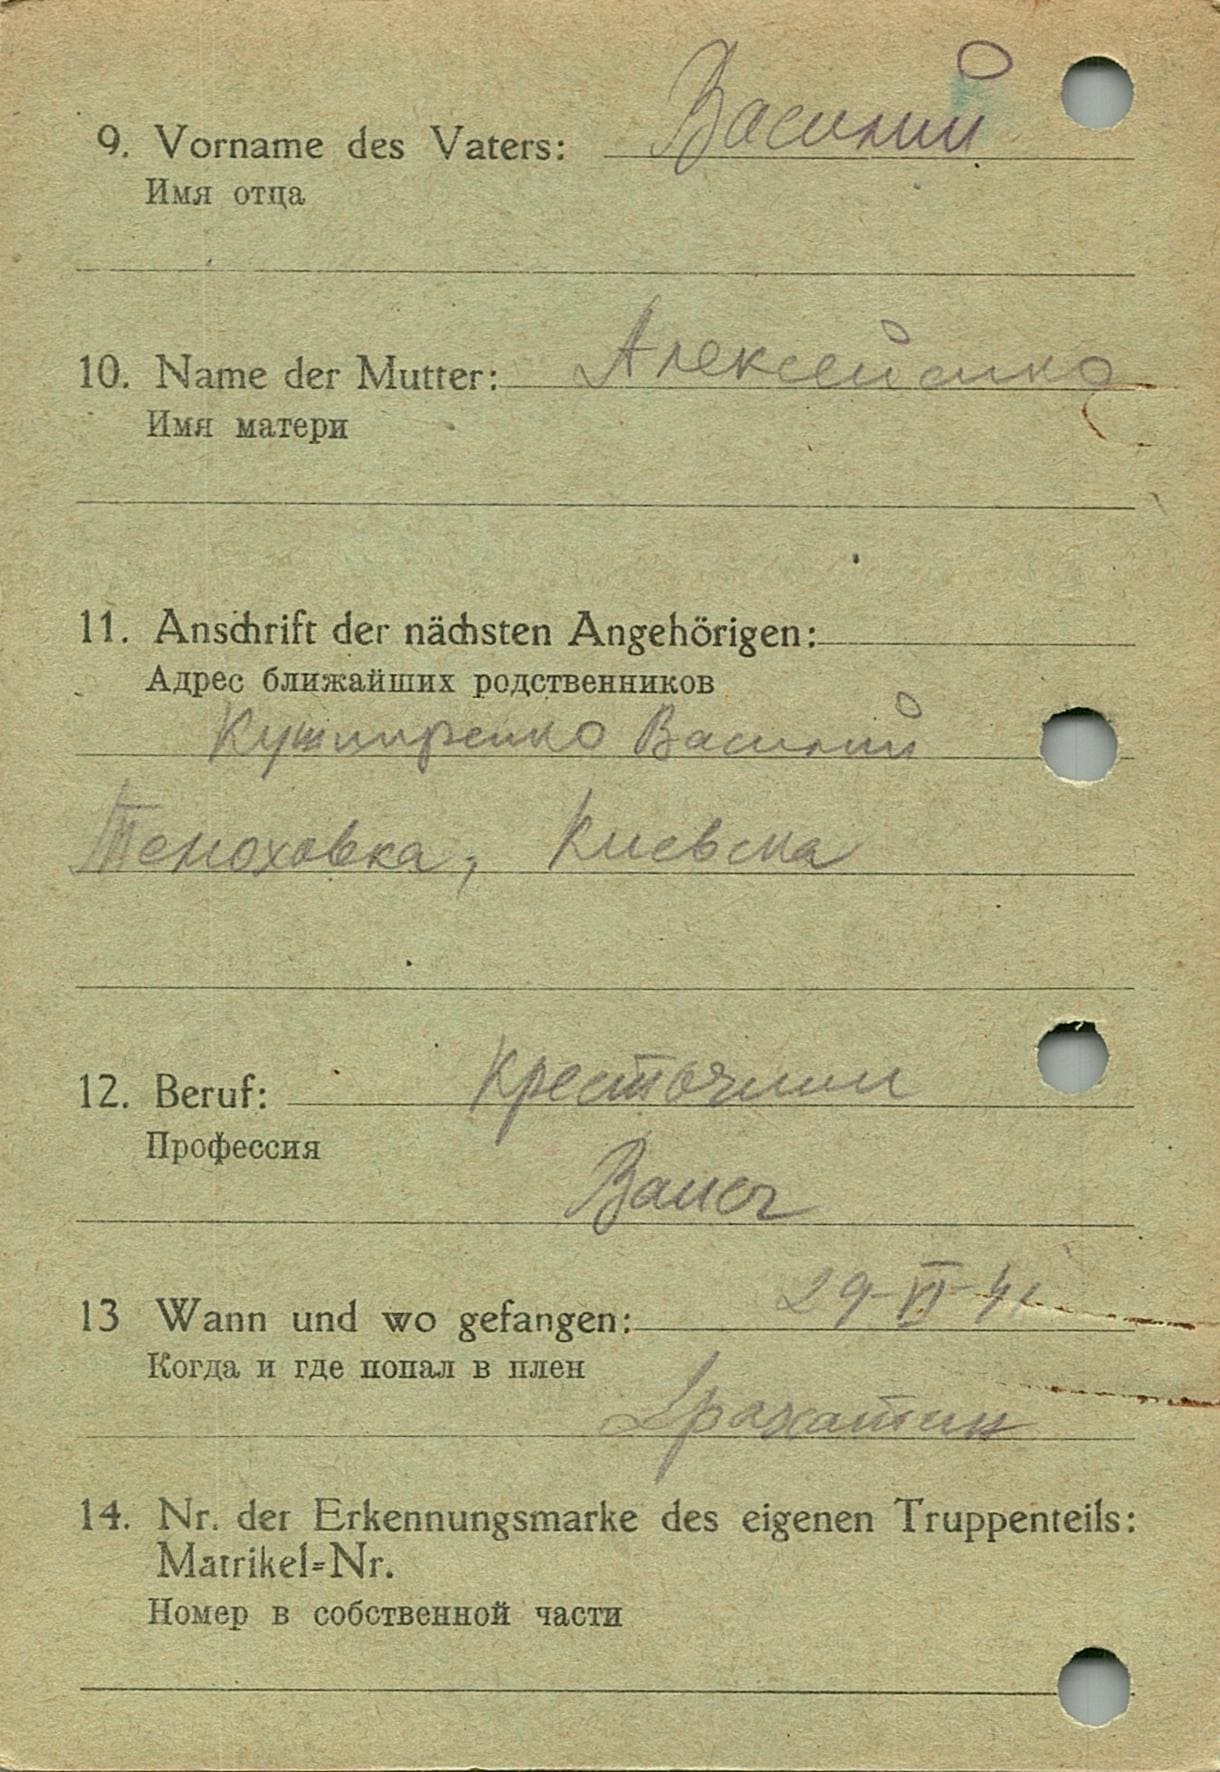 9. Vorname des Vaters: Василий
Имя отца
10. Name der Mutter: Алексеенко
Имя матери
11. Anschrift der nächsten Angehörigen:
Адрес ближайших родственников
Кушниренко Василий
Темоховка, Киевска
12. Beruf:
Профессия
13 Wann und wo gefangen: 29-VI-41
Когда и где попал в плен
14. Nr. der Erkennungsmarke des eigenen Truppenteils:
Matrikel=Nr.
Номер в собственной части